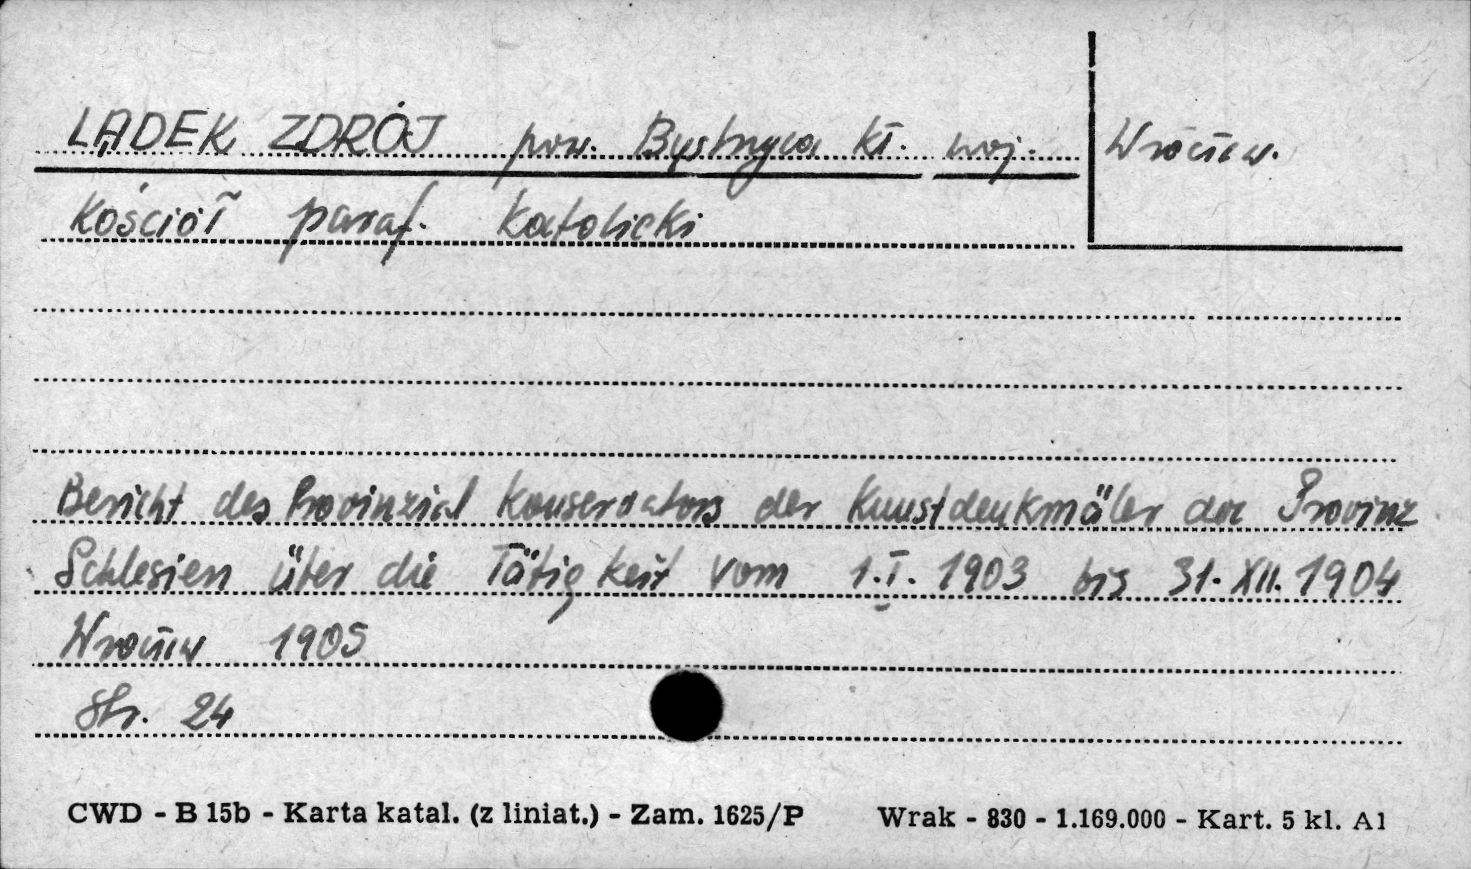 LĄDEK ZDRÓJ pow. Bystrzyca Kł. woj. Wrocław.
Kościół paraf. Katolicki
Bericht des Provinzial Konservators der Kunstdenkmäler der Provinz
Schlesien über die Tätigkeit vom 1.I. 1903 bis 31. XII. 1904
Wrocław 1905
Str. 24
CWD - B 15b - Karta katal. (z liniat.) - Zam. 1625/P Wrak - 830 - 1.169.000 - Kart. 5 kl. A1